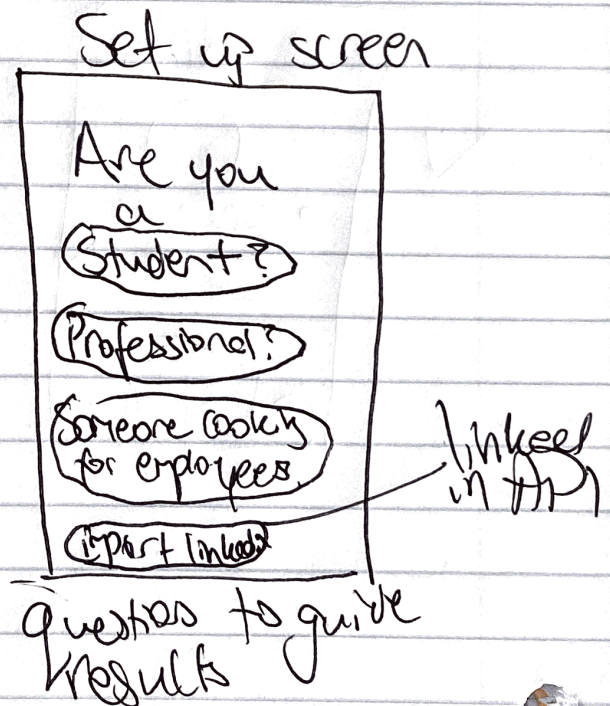 Set up screen
Are you
a
Student?
Professional?
Someone looking
for employees
import linkedin
linked
in API
questions to guide
results